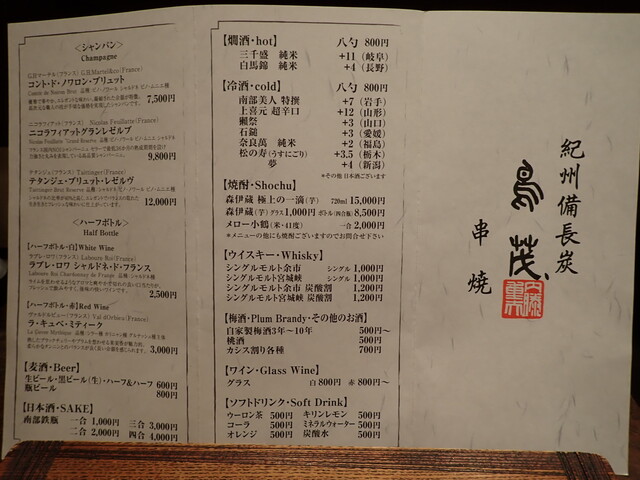 <シャンパン>
Champagne
G.Hマーテル(フランス) G.H.Martel&co(France)
コント・ド・ノワロン・ブリュット
7,500円
ニコラフィアット(フランス) Nicolas Feuillatte(France)
ニコラフィアットグランレゼルブ
9,800円
テタンジェ(フランス) Taittinger(France)
テタンジェ・ブリュット・レゼルヴ
12,000円
<ハーフボトル>
Half Bottle
【ハーフボトル・白】White Wine
ラブレ・ロワ(フランス) Laboure Roi(France)
ラブレ・ロワ シャルドネ・ド・フランス
2,500円
【ハーフボトル・赤】Red Wine
ヴァルドルビュー(フランス) Val d'Orbieu(France)
ラ・キュベ・ミティーク
3,000円
【麦酒・Beer】
生ビール・黒ビール(生)・ハーフ&ハーフ 600円
瓶ビール 800円
【日本酒・SAKE】
南部鉄瓶 一合 1,000円 三合 3,000円
二合 2,000円 四合 4,000円
【燗酒・hot】 八勺 800円
三千盛 純米 +11(岐阜)
白馬錦 純米 +4(長野)
【冷酒・cold】 八勺 800円
南部美人 特撰 +7(岩手)
上喜元 超辛口 +12(山形)
獺祭 +3(山口)
石鎚 +3(愛媛)
奈良萬 純米 +2(福島)
松の寿(うすにごり) +3.5(栃木)
夢 +4(新潟)
*その他 日本酒ございます
【焼酎・Shochu】
森伊蔵 極上の一滴(芋) 720ml 15,000円
森伊蔵(芋)グラス1,000円 ボトル(四合瓶)8,500円
メロー小鶴(米・41度) 一合 2,000円
*メニューの他にも焼酎ございますのでお問合せ下さい
【ウイスキー・Whisky】
シングルモルト余市 シングル 1,000円
シングルモルト宮城峡 シングル 1,000円
シングルモルト余市 炭酸割 1,200円
シングルモルト宮城峡 炭酸割 1,200円
【梅酒・Plum Brandy・その他のお酒】
自家製梅酒3年〜10年 500円〜
桃酒 500円
カシス割り各種 700円
【ワイン・Glass Wine】
グラス 白 800円 赤 800円〜
【ソフトドリンク・Soft Drink】
ウーロン茶 500円 キリンレモン 500円
コーラ 500円 ミネラルウォーター 500円
オレンジ 500円 炭酸水 500円
紀州備長炭
鳥茂
串焼